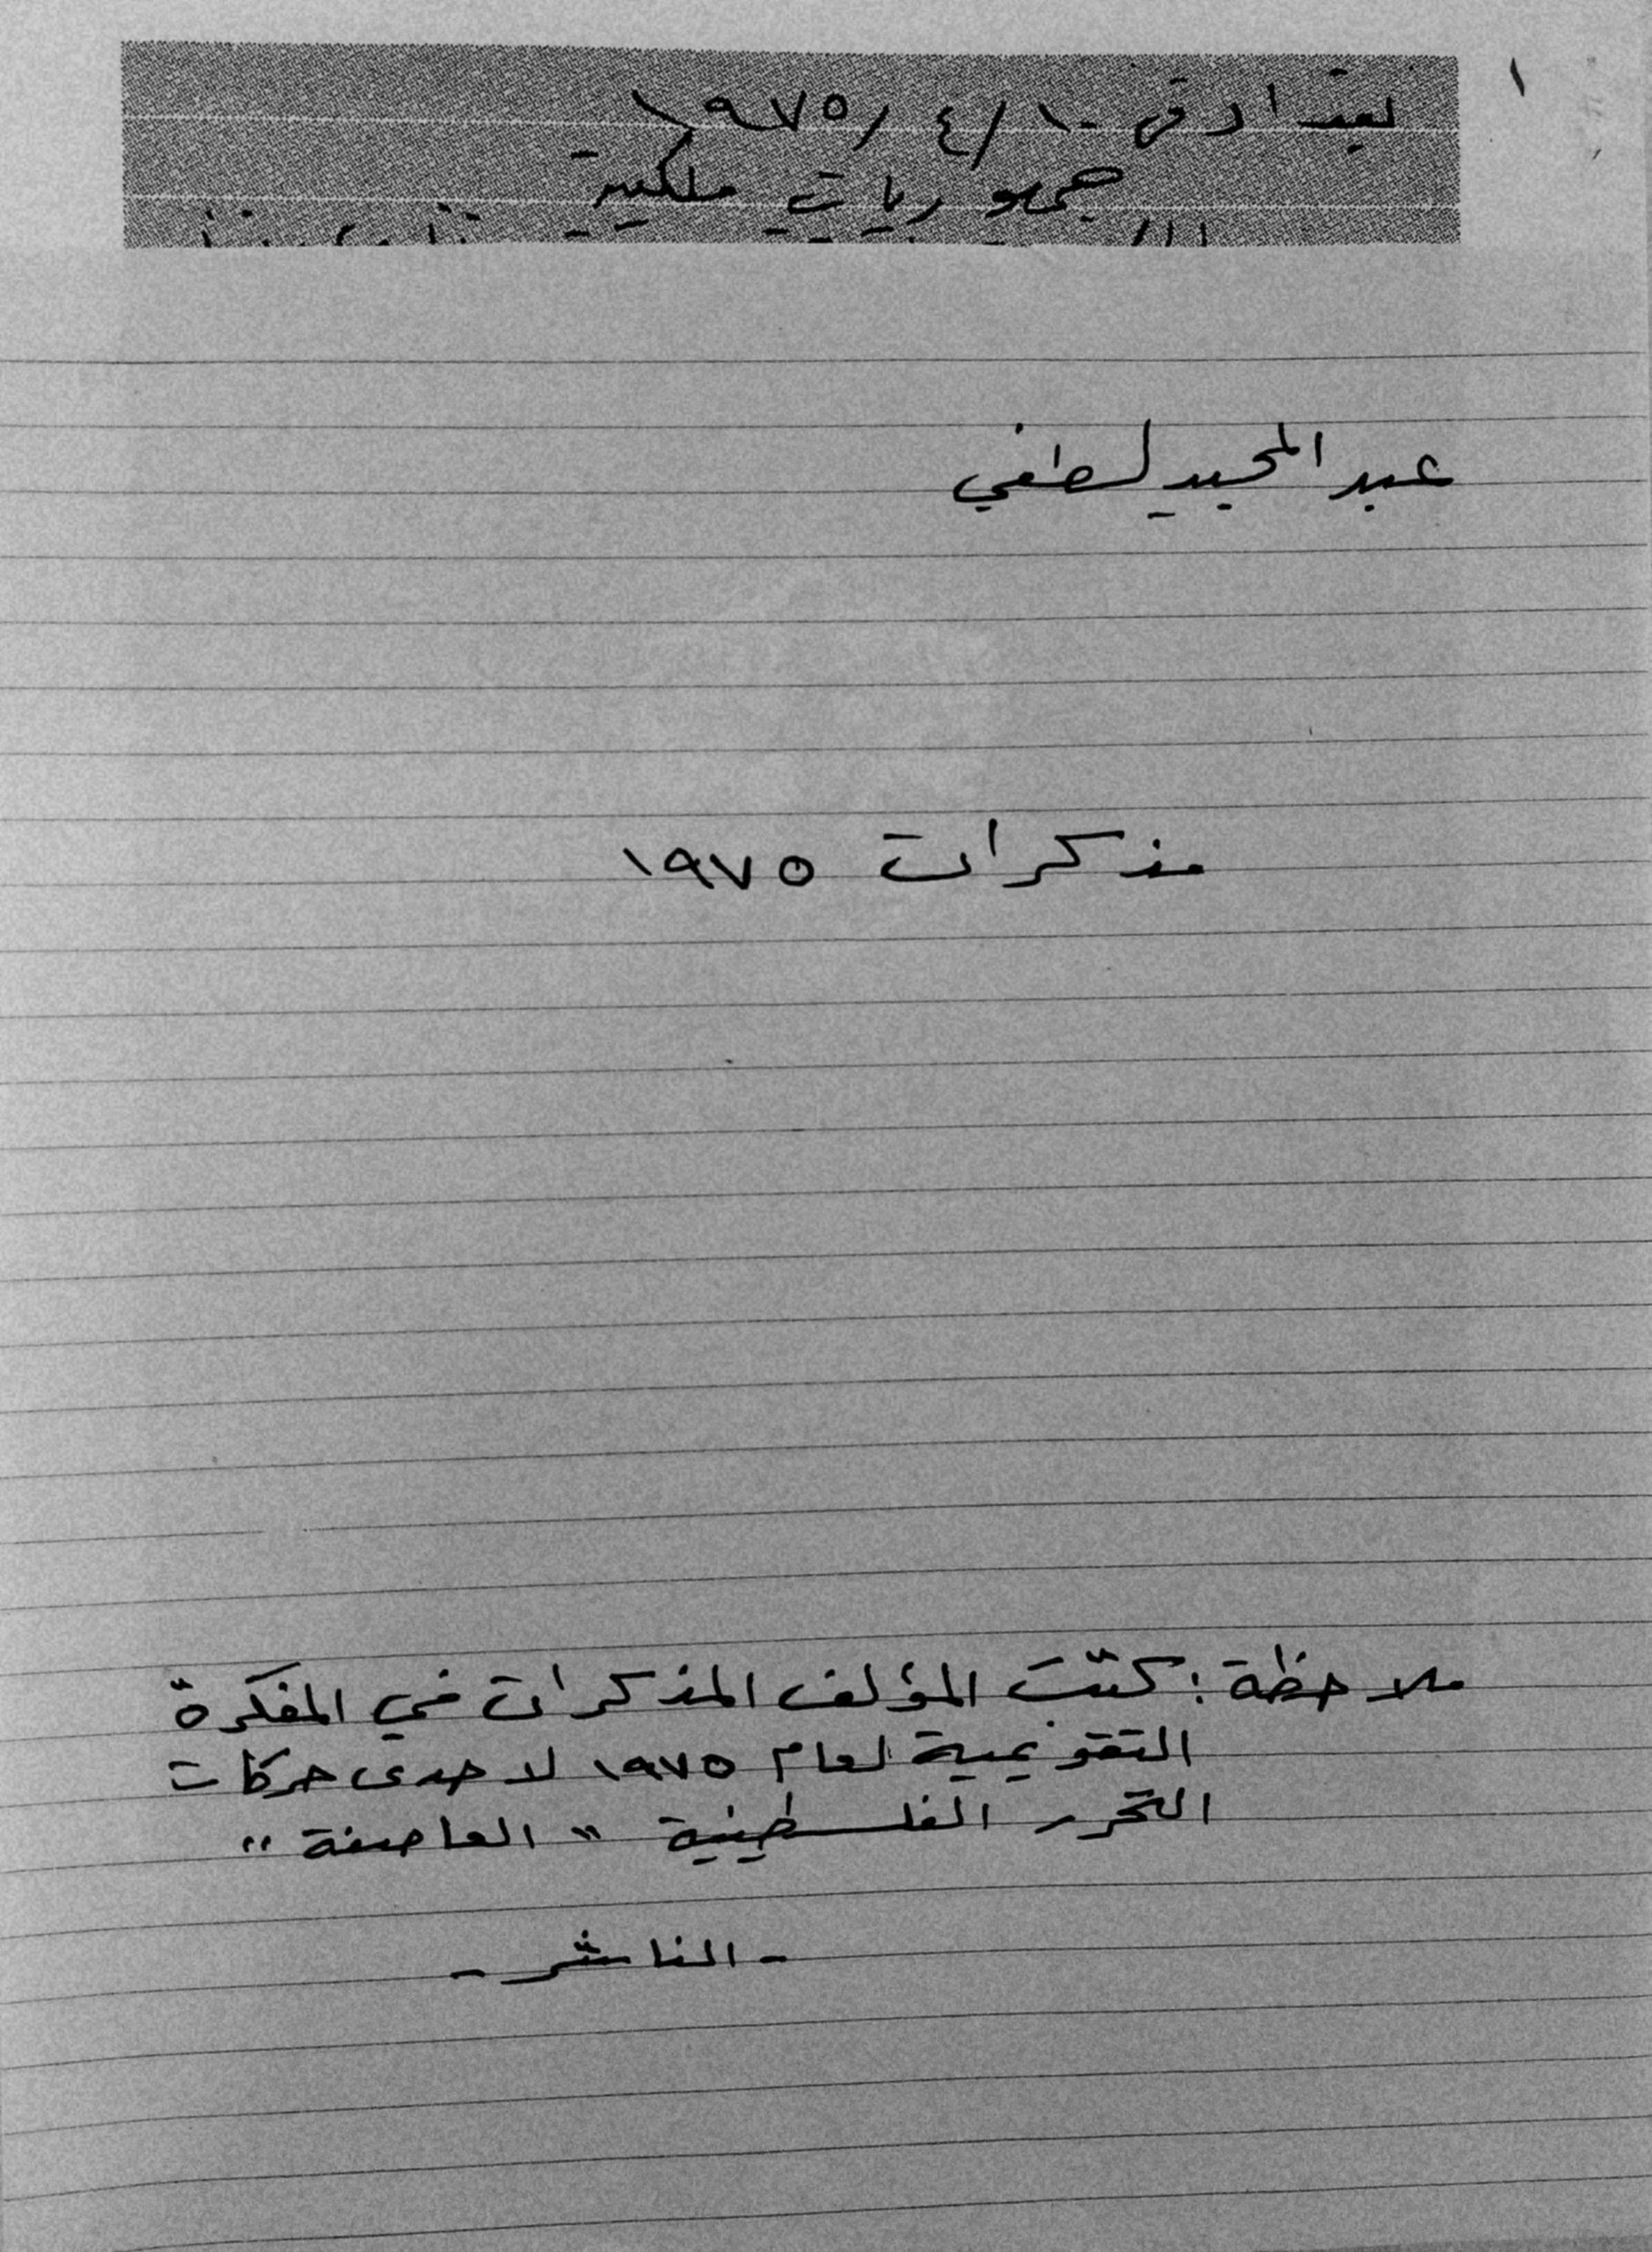 ١
بغداد في ١٠/٤/١٩٧٥
جمهوريات ملكية
عبد المجيد لطفي
مذكرات ١٩٧٥
ملاحظة: كتبَ المؤلف المذكرات في المفكرة
التقويمية لعام ١٩٧٥ لاحدى حركات
التحرر الفلسطينية "العاصفة"
- الناشر -